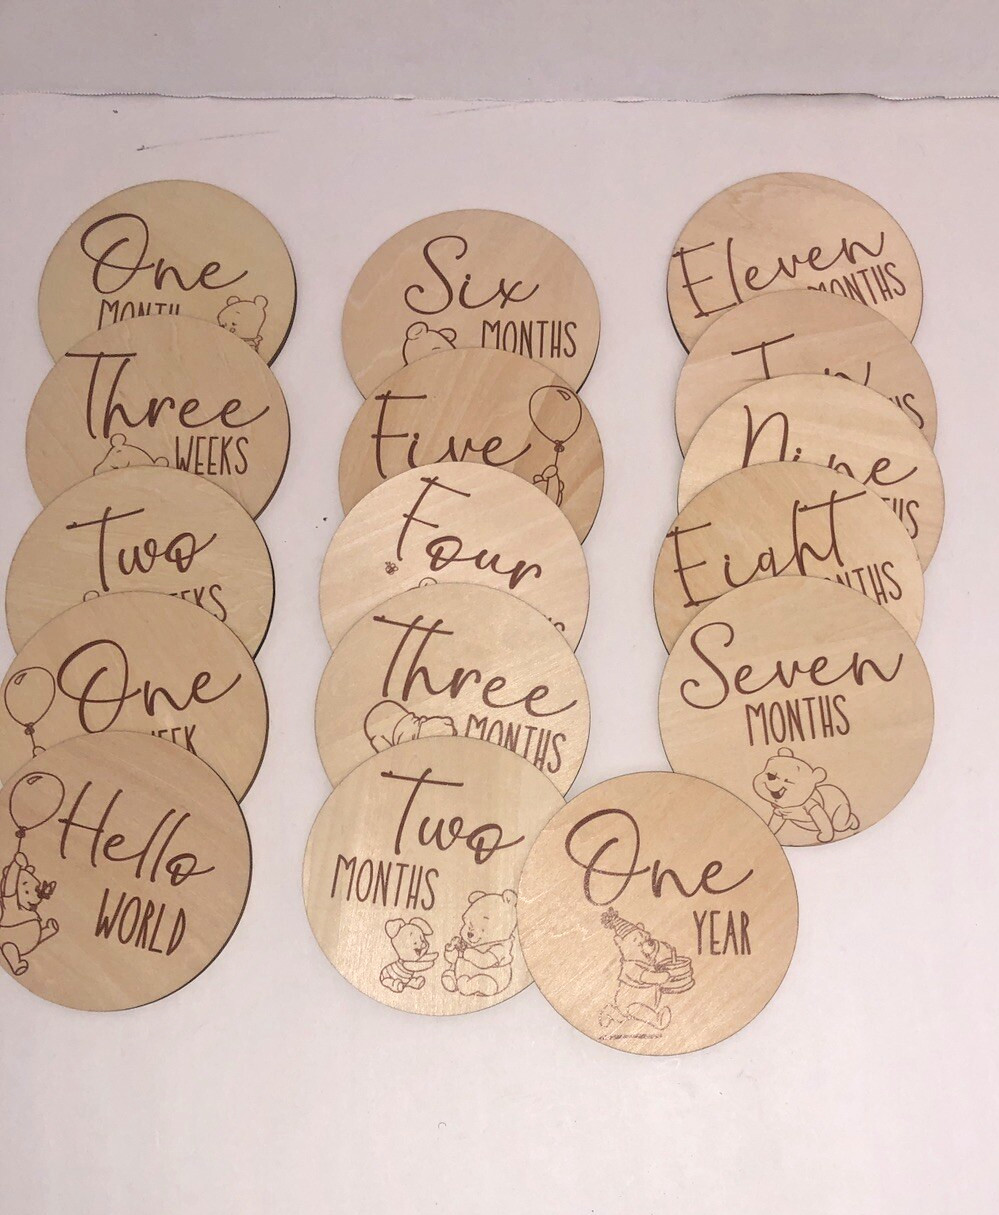 One
MONTH
Three
WEEKS
Two
WEEKS
One
WEEK
Hello
WORLD
Six
MONTHS
Five
Four
Three
MONTHS
Two
MONTHS
One
YEAR
Eleven
MONTHS
Ten
Nine
Eight
MONTHS
Seven
MONTHS